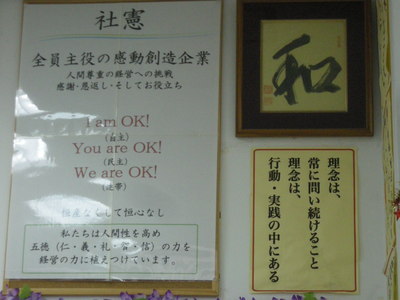 社憲
全員主役の感動創造企業
人間尊重の経営への挑戦
感謝・恩返し・そしてお役立ち
I am OK!
(自主)
You are OK!
(民主)
We are OK!
(連帯)
恒産なくして恒心なし
私たちは人間性を高め
五徳(仁・義・礼・智・信)の力を
経営の力に植えつけています。
和
理念は、
常に問い続けること
理念は、
行動・実践の中にある